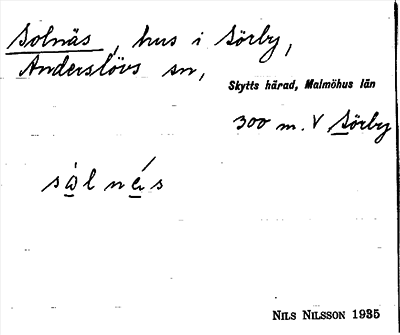 Solnäs, hus i Sörby,
Anderslövs sn,
Skytts härad, Malmöhus län
300 m. V Sörby
NILS NILSSON 1935